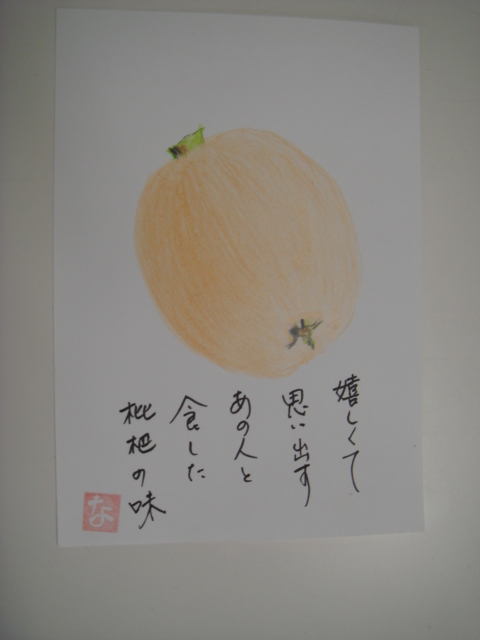 嬉しくて
思い出す
あの人と
食した
枇杷の味
な